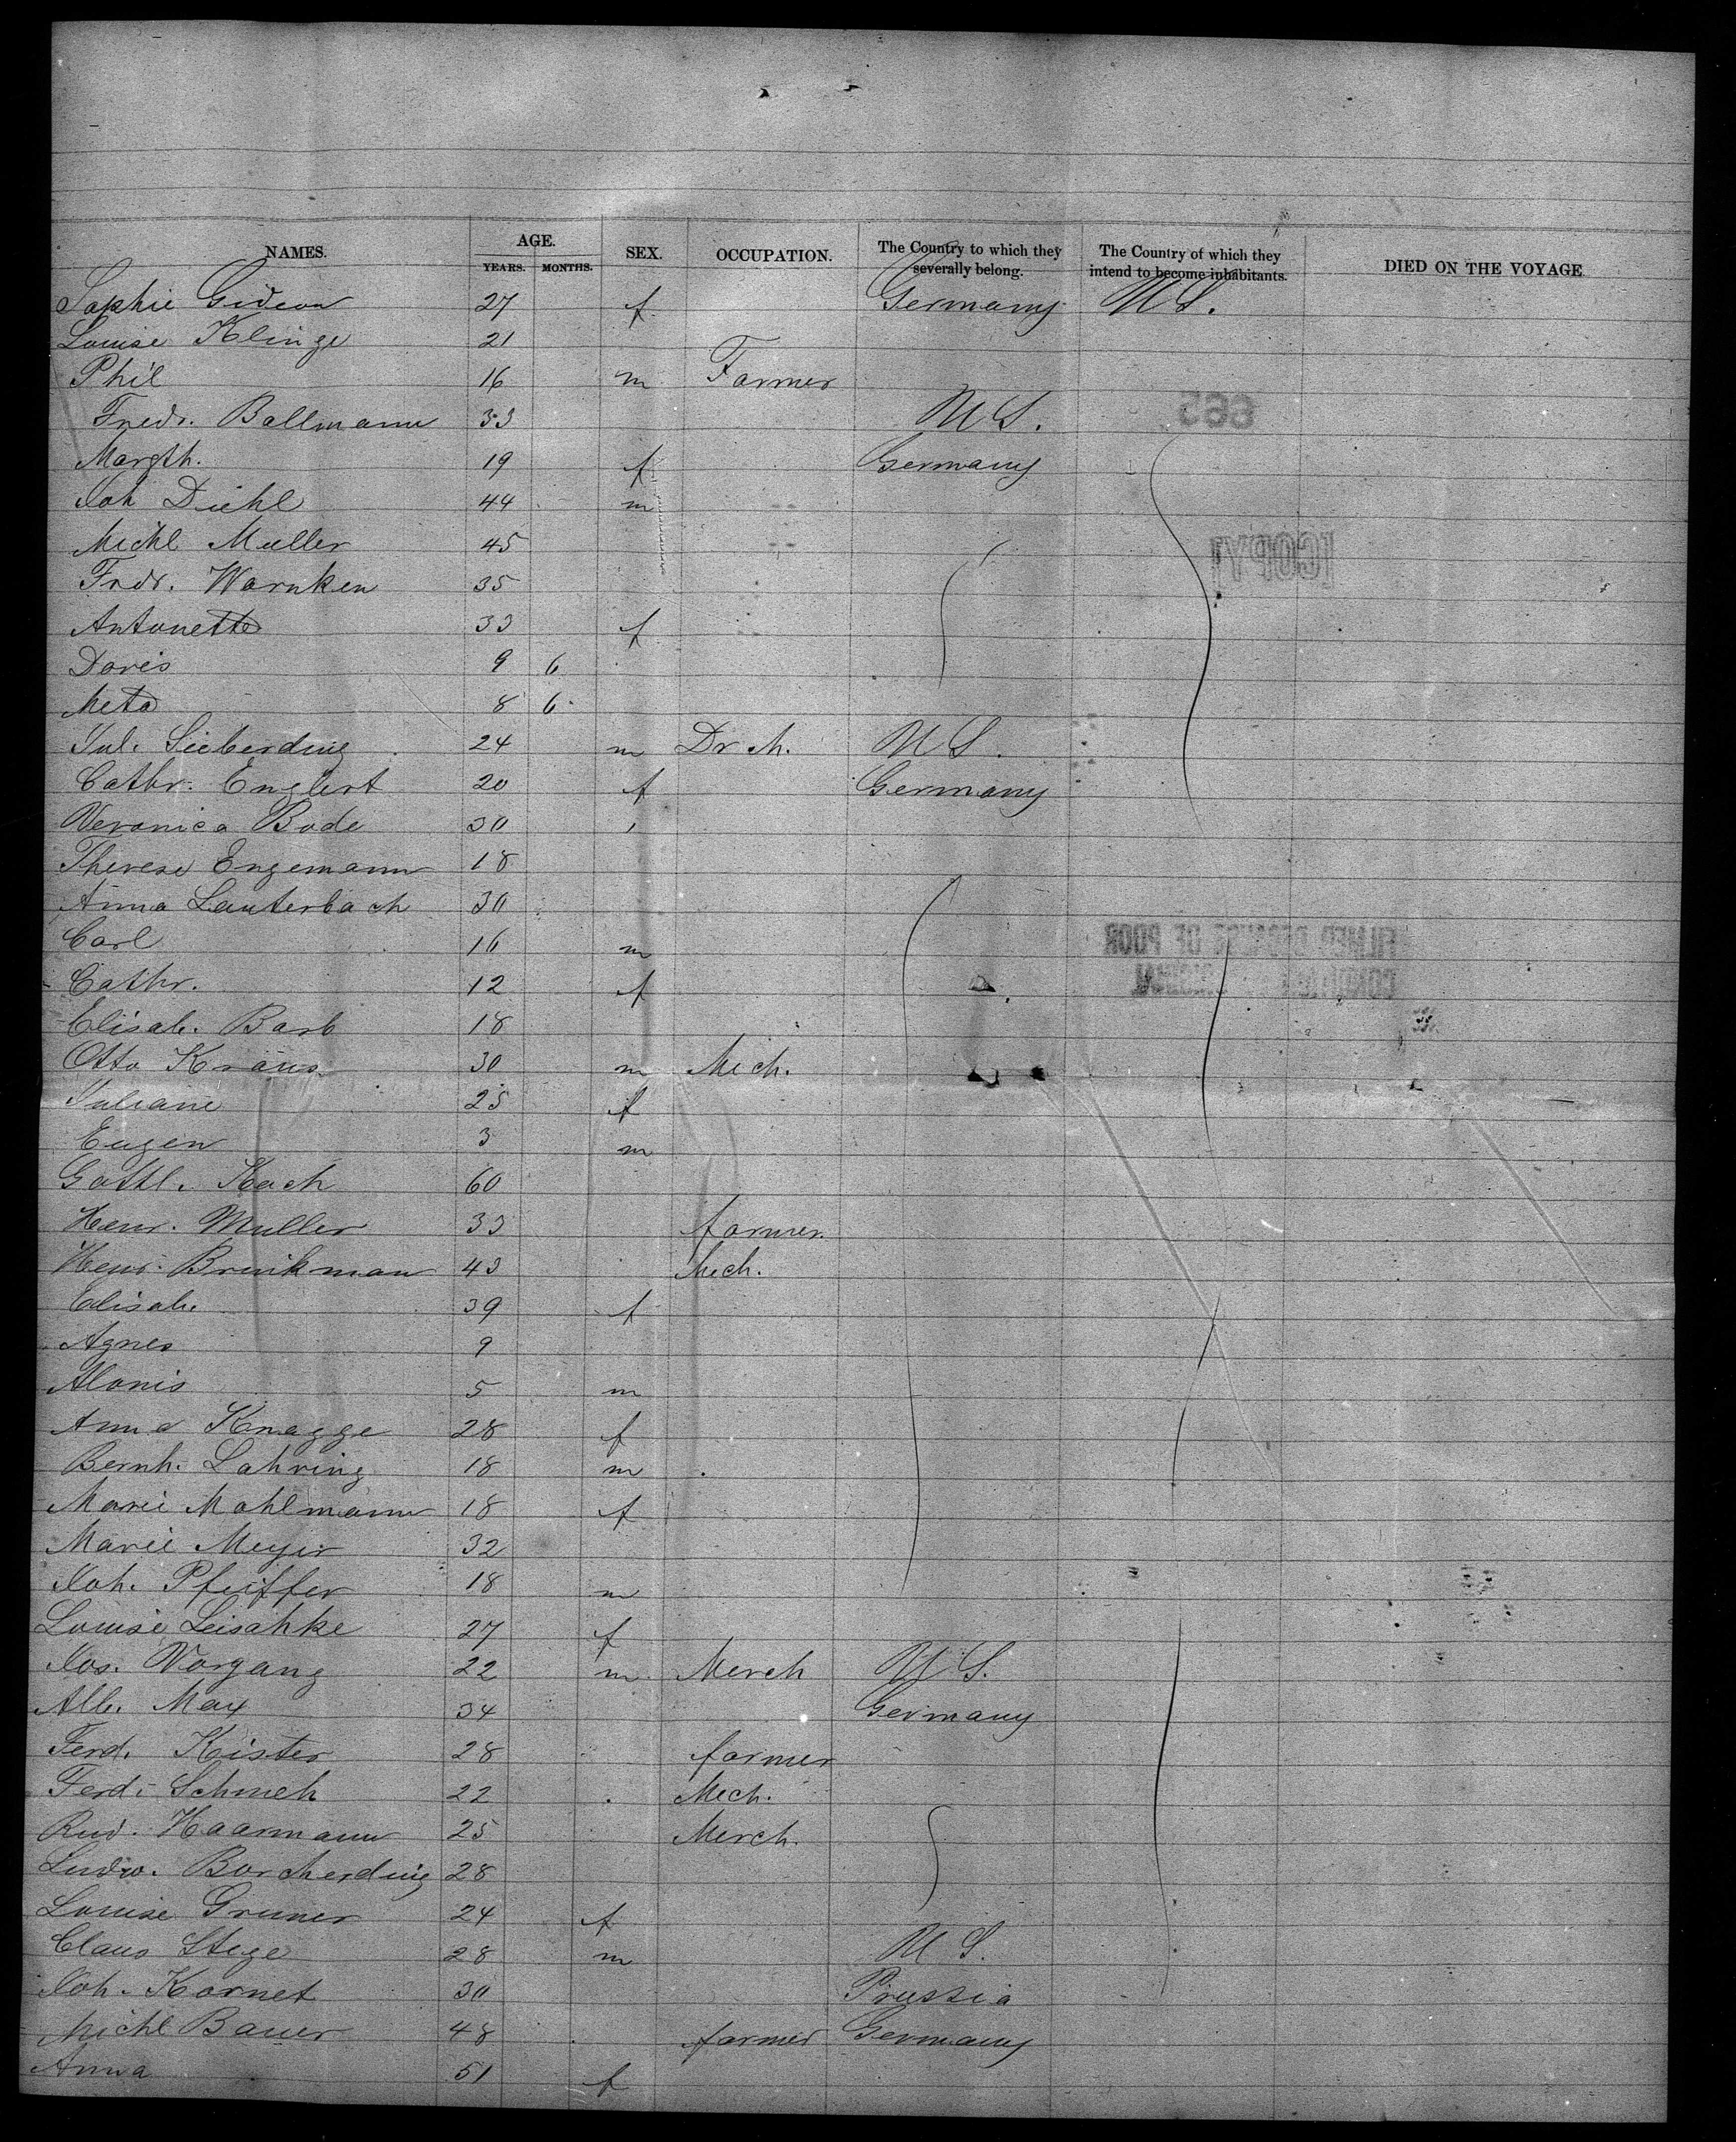 NAMES. AGE. SEX. OCCUPATION. The Country to which they severally belong. The Country of which they intend to become inhabitants. DIED ON THE VOYAGE
YEARS. MONTHS.
Sophie Gideon 27 f Germany U S.
Louise Klinge 21
Phil 16 m Farmer
Fredr. Ballmann 33 U S.
Margth. 19 f Germany
Joh Diehl 44 m
Michl Muller 45
Fredr. Warnken 35
Antonette 33 f
Doris 9 6
Meta 8 6
Jul. Sieberding 24 m Dr ch. U S.
Cathr. Englert 20 f Germany
Veronica Bode 30
Therese Engemann 18
Anna Lauterbach 30
Carl 16 m
Cathr. 12 f
Elisab. Barb 18
Otto Kraus 30 m Mech.
Juliane 25 f
Eugen 3 m
Gottl. Koch 60
Henr. Muller 33 farmer
Henr. Brinkman 43 Mech.
Elisab. 39 f
Agnes 9
Alonis 5 m
Anna Knagge 28 f
Bernh. Lahring 18 m
Marie Mahlmann 18 f
Marie Meyer 32
Joh. Pfeiffer 18 m
Louise Leisahke 27 f
Jos. Vorgang 22 m Merch U S.
Alb. May 34 Germany
Ferd. Kister 28 farmer
Ferd. Schmeh 22 Mech.
Rud. Haarmann 25 Merch.
Ludw. Borcherding 28
Louise Gruner 24 f
Claus Stege 28 m U S.
Joh. Kornet 30 Prussia
Michl Bauer 48 farmer Germany
Anna 51 f